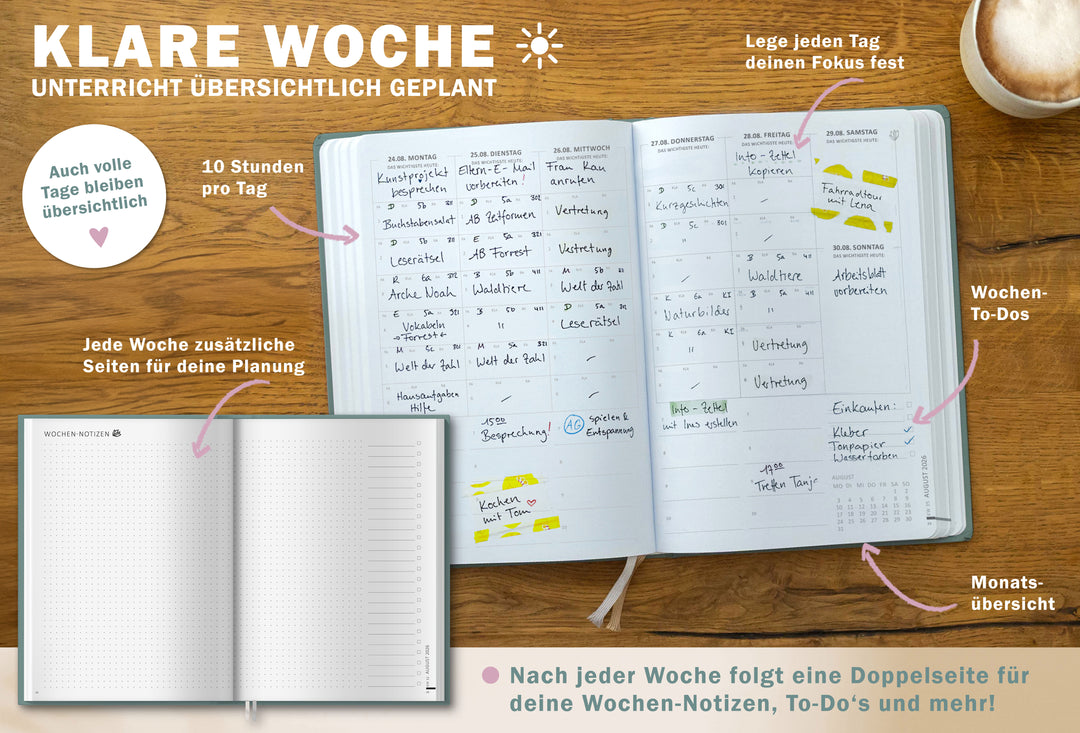 KLARE WOCHE
UNTERRICHT ÜBERSICHTLICH GEPLANT
Auch volle
Tage bleiben
übersichtlich
10 Stunden
pro Tag
Lege jeden Tag
deinen Fokus fest
Wochen-
To-Dos
Monats-
übersicht
Jede Woche zusätzliche
Seiten für deine Planung
24.08. MONTAG
DAS WICHTIGSTE HEUTE:
Kunstprojekt
besprechen
D 5b 301
Buchstabensalat
D 5b 301
Leserätsel
R 6a 312
Arche Noah
E 5a 301
Vokabeln
→Forrest←
M 5c 301
Welt der Zahl
Hausaufgaben
Hilfe
25.08. DIENSTAG
DAS WICHTIGSTE HEUTE:
Eltern-E-Mail
vorbereiten!
D 5a 302
AB Zeitformen
E 5a 301
AB Forrest
B 5b 411
Waldtiere
B 5b 411
"
M 5b 301
Welt der Zahl
15⁰⁰
Besprechung!
Kochen
mit Tom
26.08. MITTWOCH
DAS WICHTIGSTE HEUTE:
Frau Rau
anrufen
Vertretung
Vertretung
M 5b 311
Welt der Zahl
D 5a 312
Leserätsel
AG spielen &
Entspannung
27.08. DONNERSTAG
DAS WICHTIGSTE HEUTE:
D 5c 301
Kurzgeschichten
D 5c 301
"
K 6a KI
Naturbilder
K 6a KI
"
Info-Zettel
mit Ines erstellen
28.08. FREITAG
DAS WICHTIGSTE HEUTE:
Info-Zettel
Kopieren
B 5a 411
Waldtiere
B 5a 411
"
Vertretung
Vertretung
17⁰⁰
Treffen Tanja
29.08. SAMSTAG
DAS WICHTIGSTE HEUTE:
Fahrradtour
mit Lena
30.08. SONNTAG
DAS WICHTIGSTE HEUTE:
Arbeitsblatt
vorbereiten
Einkaufen:
Kleber
Tonpapier
Wasserfarben
AUGUST
MO DI MI DO FR SA SO
1 2
3 4 5 6 7 8 9
10 11 12 13 14 15 16
17 18 19 20 21 22 23
24 25 26 27 28 29 30
31
AUGUST 2026
WOCHEN-NOTIZEN
AUGUST 2026
Nach jeder Woche folgt eine Doppelseite für
deine Wochen-Notizen, To-Do‘s und mehr!